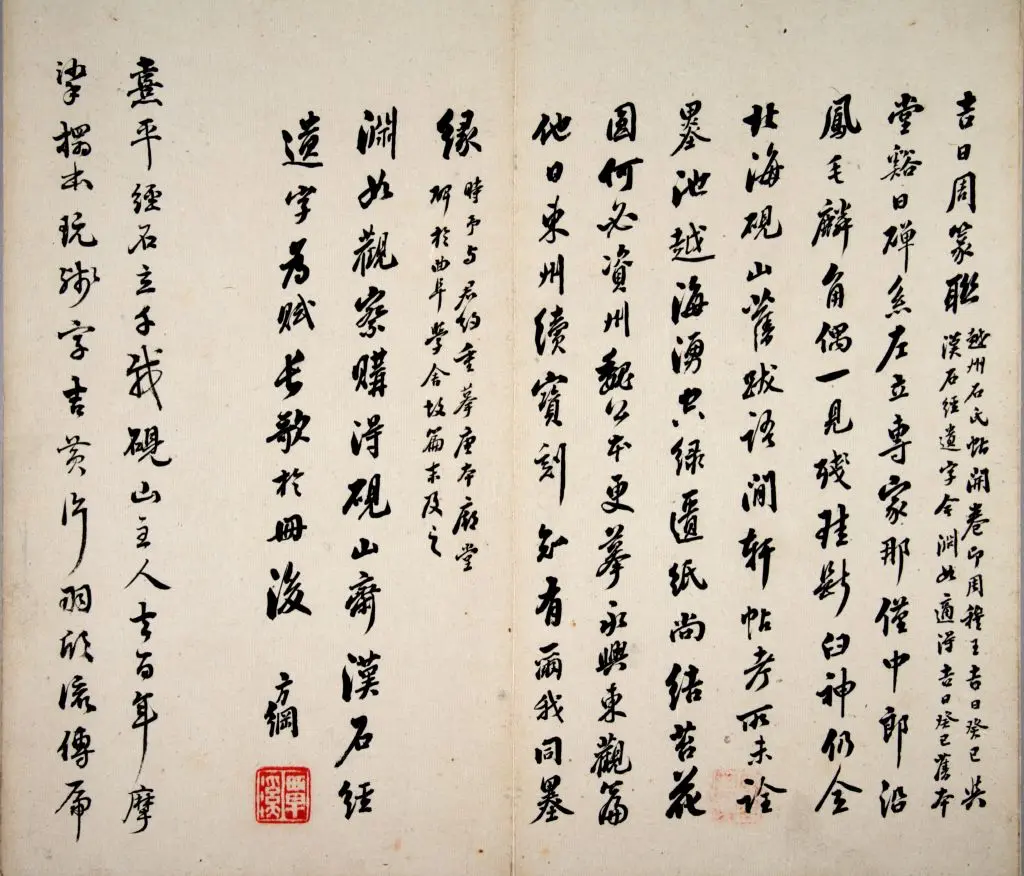 吉日周篆聯
越州石氏帖開卷即周穆王吉日癸巳與
漢石經遺字今淵如適得吉日癸巳舊本
堂谿日磾左立專家那僅中郎沿
鳳毛麟角偶一見殘珪斷臼神仍全
北海硯山舊跋語澗軒帖考所未詮
墨池越海湧出綠匱紙尚結苔花
圓何必資州魏公本更摹永興東觀篇
他日東州續寶刻知有爾我同墨
緣
時予與君約重摹唐本廟堂
碑於曲阜學舍故篇末及之
淵如觀察購得硯山齋漢石經
遺字為賦長歌於冊後 方綱
覃溪
熹平經石立千載硯山主人去百年摩
挲搨本玩殘字吉黃片羽欣流傳